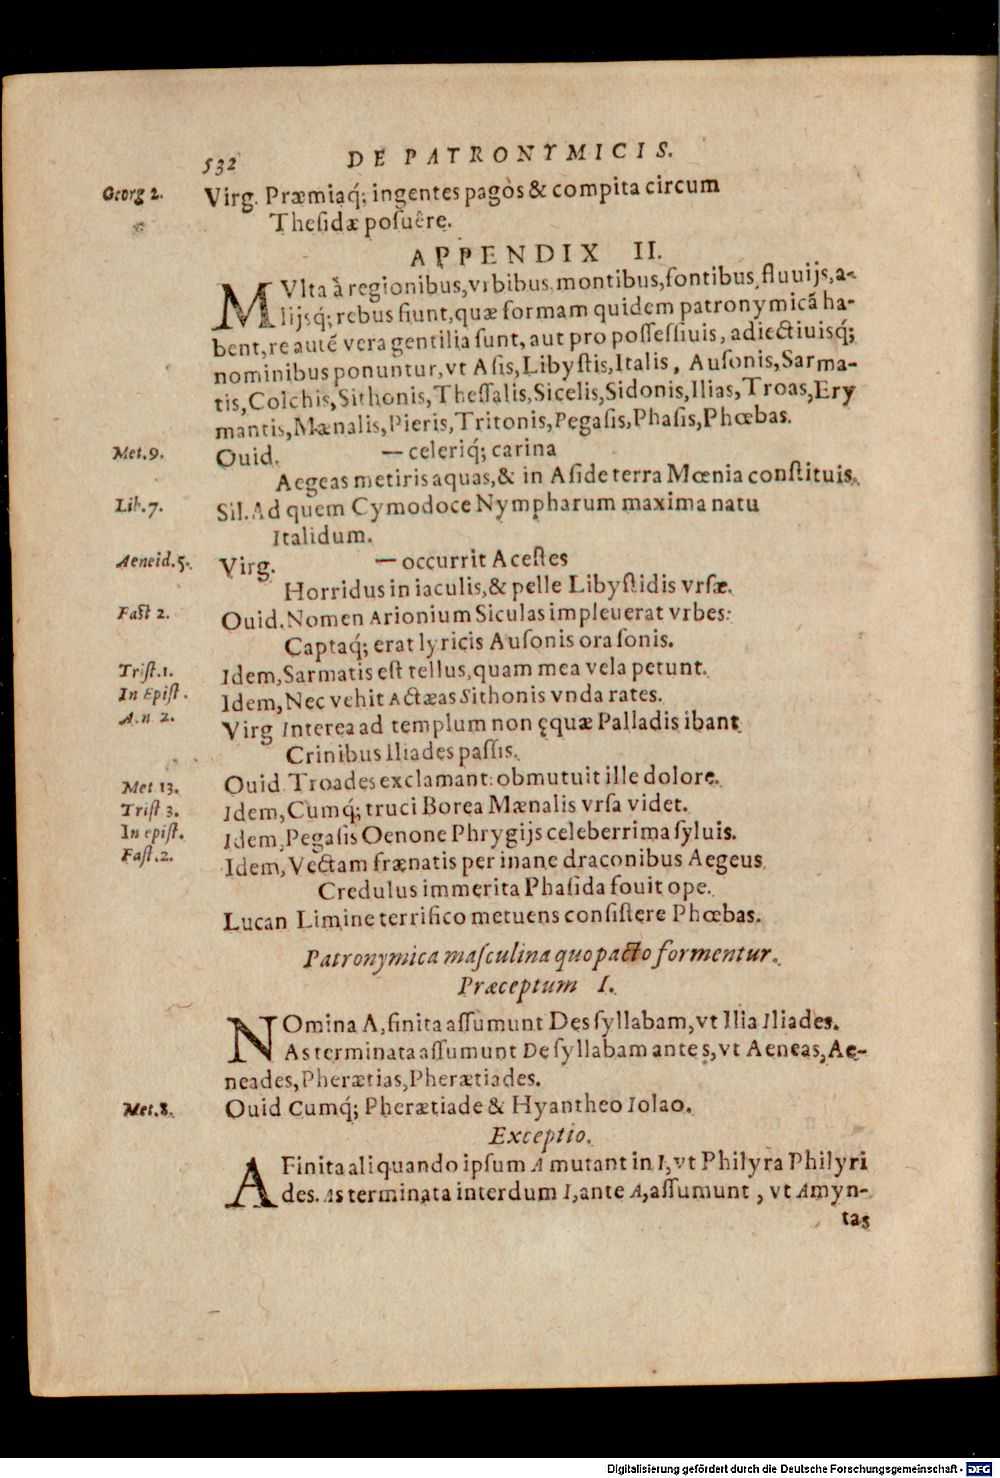 532 DE PATRONYMICIS.
Georg 2. Virg. Præmiaq́; ingentes pagos & compita circum
Thesidæ posuêre.
APPENDIX II.
MVlta à regionibus, vrbibus, montibus, fontibus, fluuijs, a-
lijsq́; rebus fiunt, quæ formam quidem patronymicā ha-
bent, re autē vera gentilia sunt, aut pro possessiuis, adiectiuisq́;
nominibus ponuntur, vt Asis, Libystis, Italis, Ausonis, Sarma-
tis, Colchis, Sithonis, Thessalis, Sicelis, Sidonis, Ilias, Troas, Ery
mantis, Mænalis, Pieris, Tritonis, Pegasis, Phasis, Phœbas.
Met. 9. Ouid. — celeriq́; carina
Aegeas metiris aquas, & in Aside terra Mœnia constituis.
Lib. 7. Sil. Ad quem Cymodoce Nympharum maxima natu
Italidum.
Aeneid. 5. Virg. — occurrit Acestes
Horridus in iaculis, & pelle Libystidis vrsæ.
Fast 2. Ouid. Nomen Arionium Siculas impleuerat vrbes:
Captaq́; erat lyricis Ausonis ora sonis.
Trist. 1. Idem, Sarmatis est tellus, quam mea vela petunt.
In Epist. Idem, Nec vehit Actæas Sithonis vnda rates.
A.n. 2. Virg Interea ad templum non ęquæ Palladis ibant
Crinibus Iliades passis.
Met 13. Ouid Troades exclamant: obmutuit ille dolore.
Trist 3. Idem, Cumq́; truci Borea Mænalis vrsa videt.
In epist. Idem, Pegasis Oenone Phrygijs celeberrima syluis.
Fast. 2. Idem, Vectam frænatis per inane draconibus Aegeus
Credulus immerita Phasida fouit ope.
Lucan Limine terrifico metuens consistere Phœbas.
Patronymica masculina quo pacto formentur.
Præceptum I.
NOmina A, finita assumunt Des syllabam, vt Ilia Iliades.
As terminata assumunt De syllabam ante s, vt Aeneas, Ae-
neades, Pherætias, Pherætiades.
Met. 8. Ouid Cumq́; Pherætiade & Hyantheo Iolao.
Exceptio.
A Finita aliquando ipsum A mutant in I, vt Philyra Philyri
des. As terminata interdum I, ante A, assumunt, vt Amyn-
tas
Digitalisierung gefördert durch die Deutsche Forschungsgemeinschaft - DFG